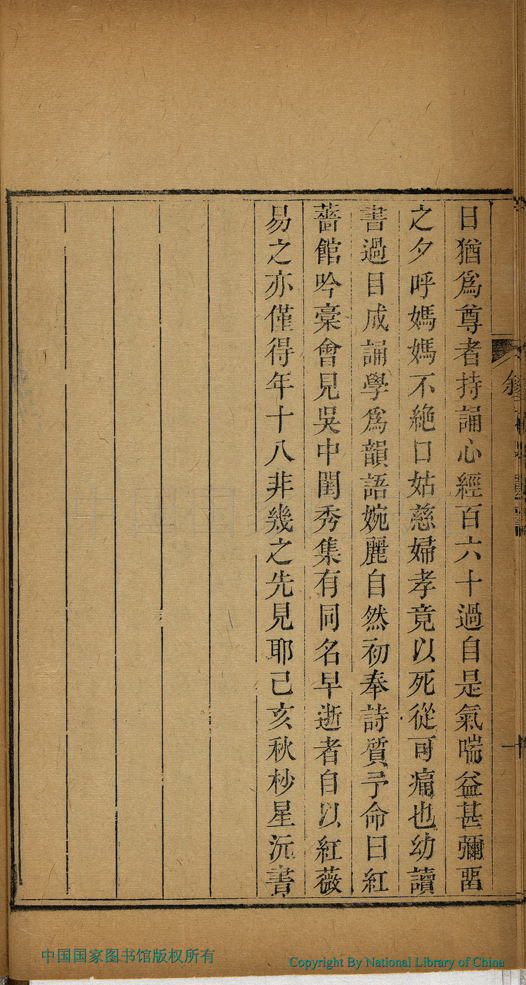 日猶爲尊者持誦心經百六十過自是氣喘益甚彌畱
之夕呼媽媽不絶口姑慈婦孝竟以死從可痛也幼讀
書過目成誦學爲韻語婉麗自然初奉詩質予命曰紅
薔館吟稾會見吳中閨秀集有同名早逝者自以紅薇
易之亦僅得年十八非幾之先見耶己亥秋杪星沅書
中国国家图书馆版权所有
Copyright By National Library of China